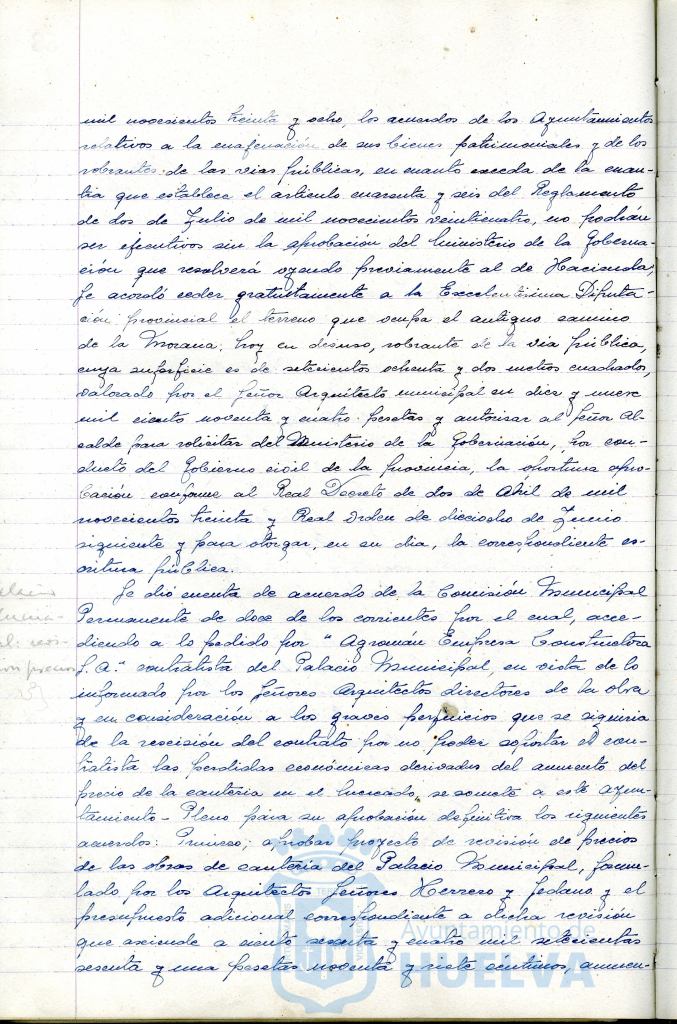 mil novecientos treinta y ocho, los acuerdos de los Ayuntamientos
relativos a la enajenación de sus bienes patrimoniales y de los
sobrantes de las vias públicas, en cuanto exceda de la cuan-
tia que establece el articulo cuarenta y seis del Reglamento
de dos de Julio de mil novecientos veinticuatro, no podrán
ser ejecutivos sin la aprobación del Ministerio de la Goberna-
ción que resolverá oyendo previamente al de Hacienda,
Se acordó ceder gratuitamente a la Excelentisima Diputa-
ción provincial el terreno que ocupa el antiguo camino
de la Morana, hoy en desuso, sobrante de la via pública,
cuya superficie es de setecientos ochenta y dos metros cuadrados,
valorado por el Señor Arquitecto municipal en diez y nueve
mil ciento noventa y cuatro pesetas y autorizar al Señor Al-
calde para solicitar del Ministerio de la Gobernación, por con-
ducto del Gobierno civil de la provincia, la oportuna apro-
bación conforme al Real Decreto de dos de Abril de mil
novecientos treinta y Real Orden de dieciocho de Junio
siguiente y para otorgar, en su dia, la correspondiente es-
critura pública.
Se dió cuenta de acuerdo de la Comisión Municipal
Permanente de doce de los corrientes por el cual, acce-
diendo a lo pedido por "Agromán Empresa Constructora
S.A." contratista del Palacio Municipal, en vista de lo
informado por los Señores Arquitectos directores de la obra
y en consideración a los graves perjuicios que se siguiria
de la rescisión del contrato por no poder soportar el con-
tratista las perdidas económicas derivadas del aumento del
precio de la canteria en el mercado, se somete a este Ayun-
tamiento-Pleno para su aprobación definitiva los siguientes
acuerdos: Primero; aprobar proyecto de revisión de precios
de las obras de canteria del Palacio Municipal, formu-
lado por los Arquitectos Señores Herrero y Sedano y el
presupuesto adicional correspondiente a dicha revisión
que asciende a ciento sesenta y cuatro mil setecientas
sesenta y una pesetas noventa y siete centimos, aumen-
Ayuntamiento de
HUELVA